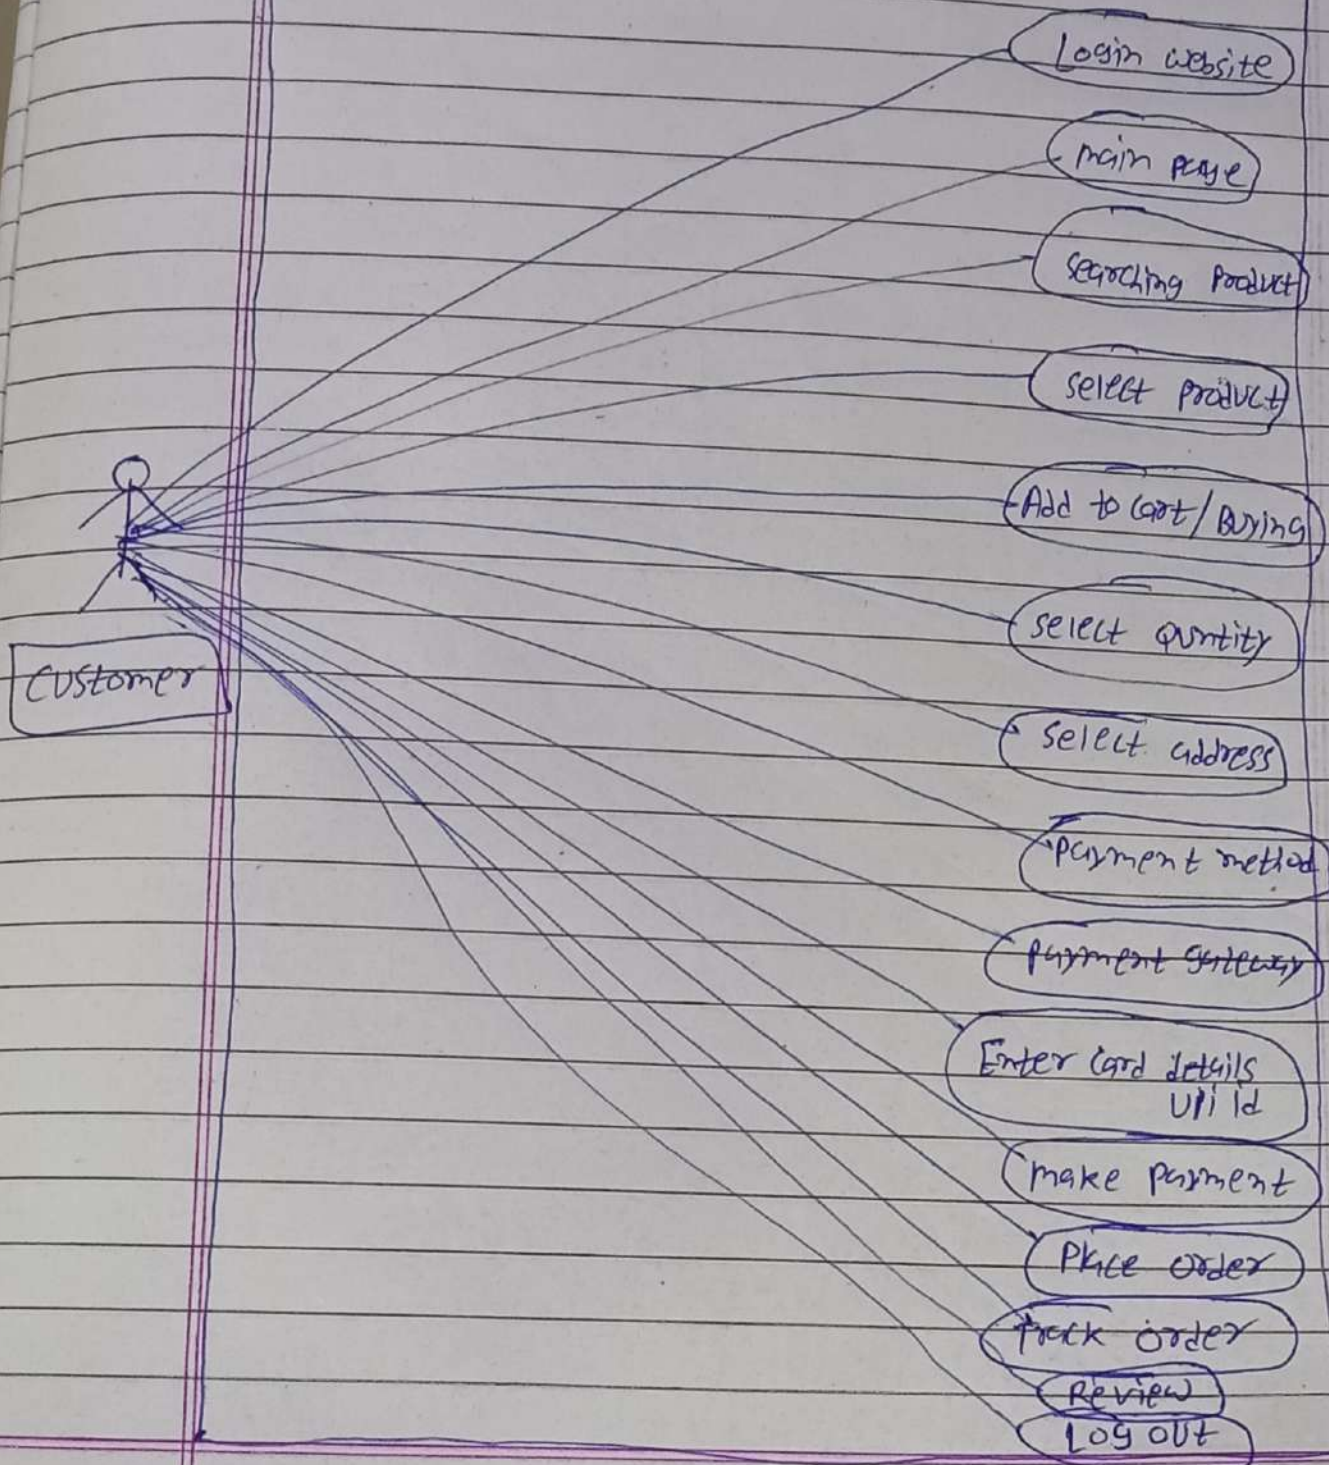 Login website
main page
searching Product
select product
Add to Cart/Buying
select Quntity
CUStomer
select address
payment method
payment gateway
Enter Card details
UPi id
make payment
Place order
Track order
Review
Log out